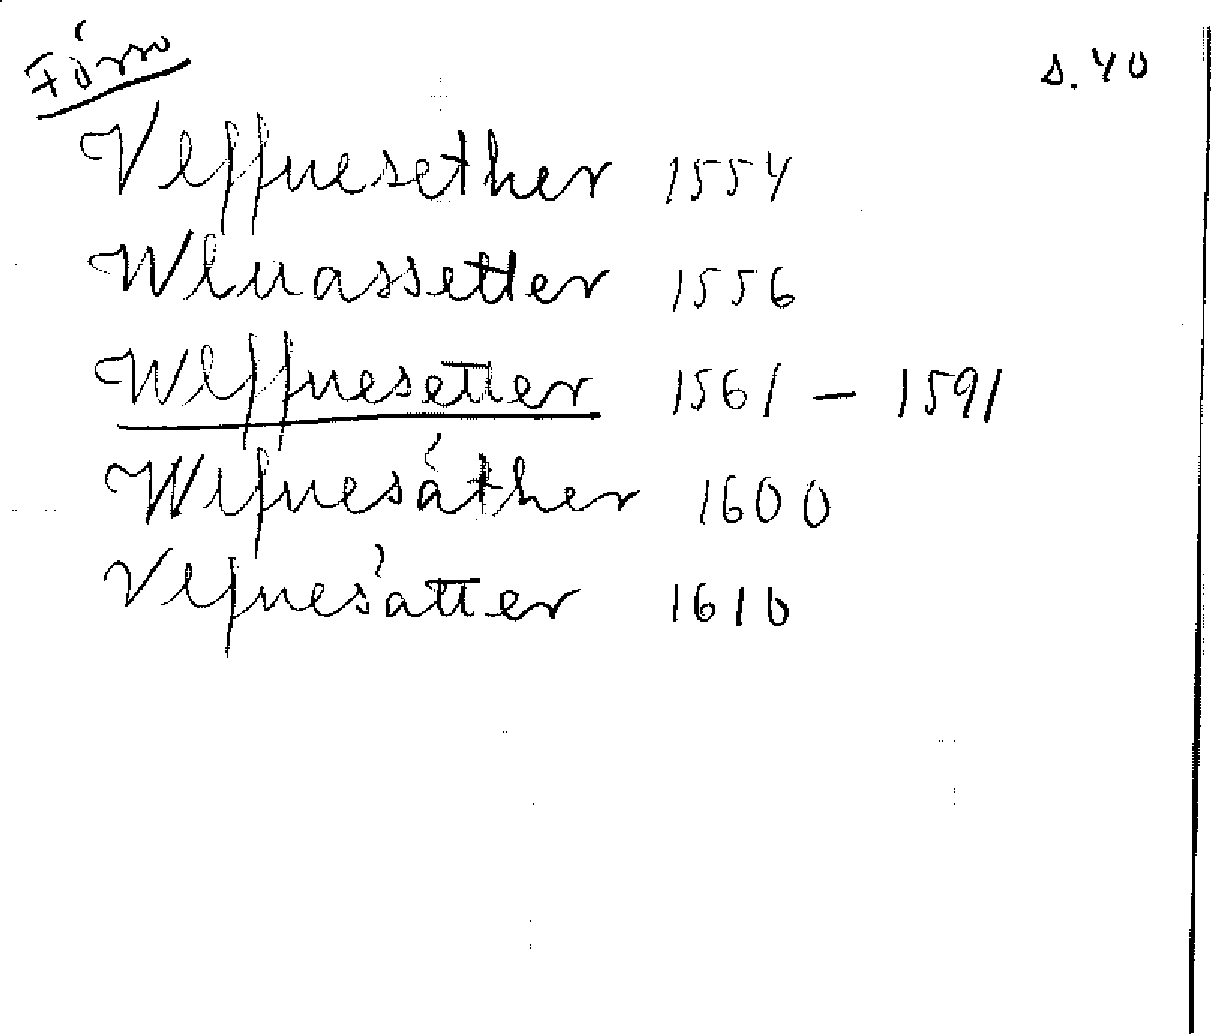 s. 40
Veffnesether 1554
Weuassetter 1556
Weffnesetter 1561 – 1591
Wefnesäther 1600
Vefnesätter 1610